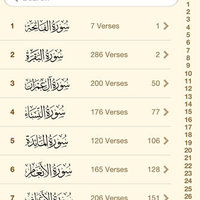 1 سُورَةُ الفَاتِحَةِ 7 Verses 1
2 سُورَةُ البَقَرَةِ 286 Verses 2
3 سُورَةُ آلِ عِمْرَان 200 Verses 50
4 سُورَةُ النِّسَاءِ 176 Verses 77
5 سُورَةُ المَائِدَةِ 120 Verses 106
6 سُورَةُ الأَنْعَامِ 165 Verses 128
7 سُورَةُ الأَعْرَافِ 206 Verses 151
1
2
3
4
5
6
7
8
9
10
11
12
13
14
15
16
17
18
19
20
21
22
23
24
25
26